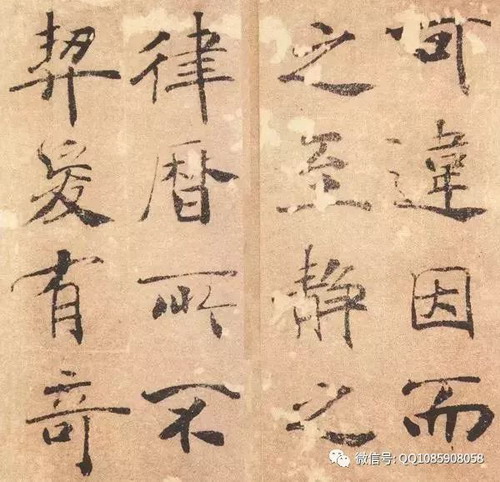 可違因而
之至静之
律曆所不
契爰有竒
微信号: QQ1085908058